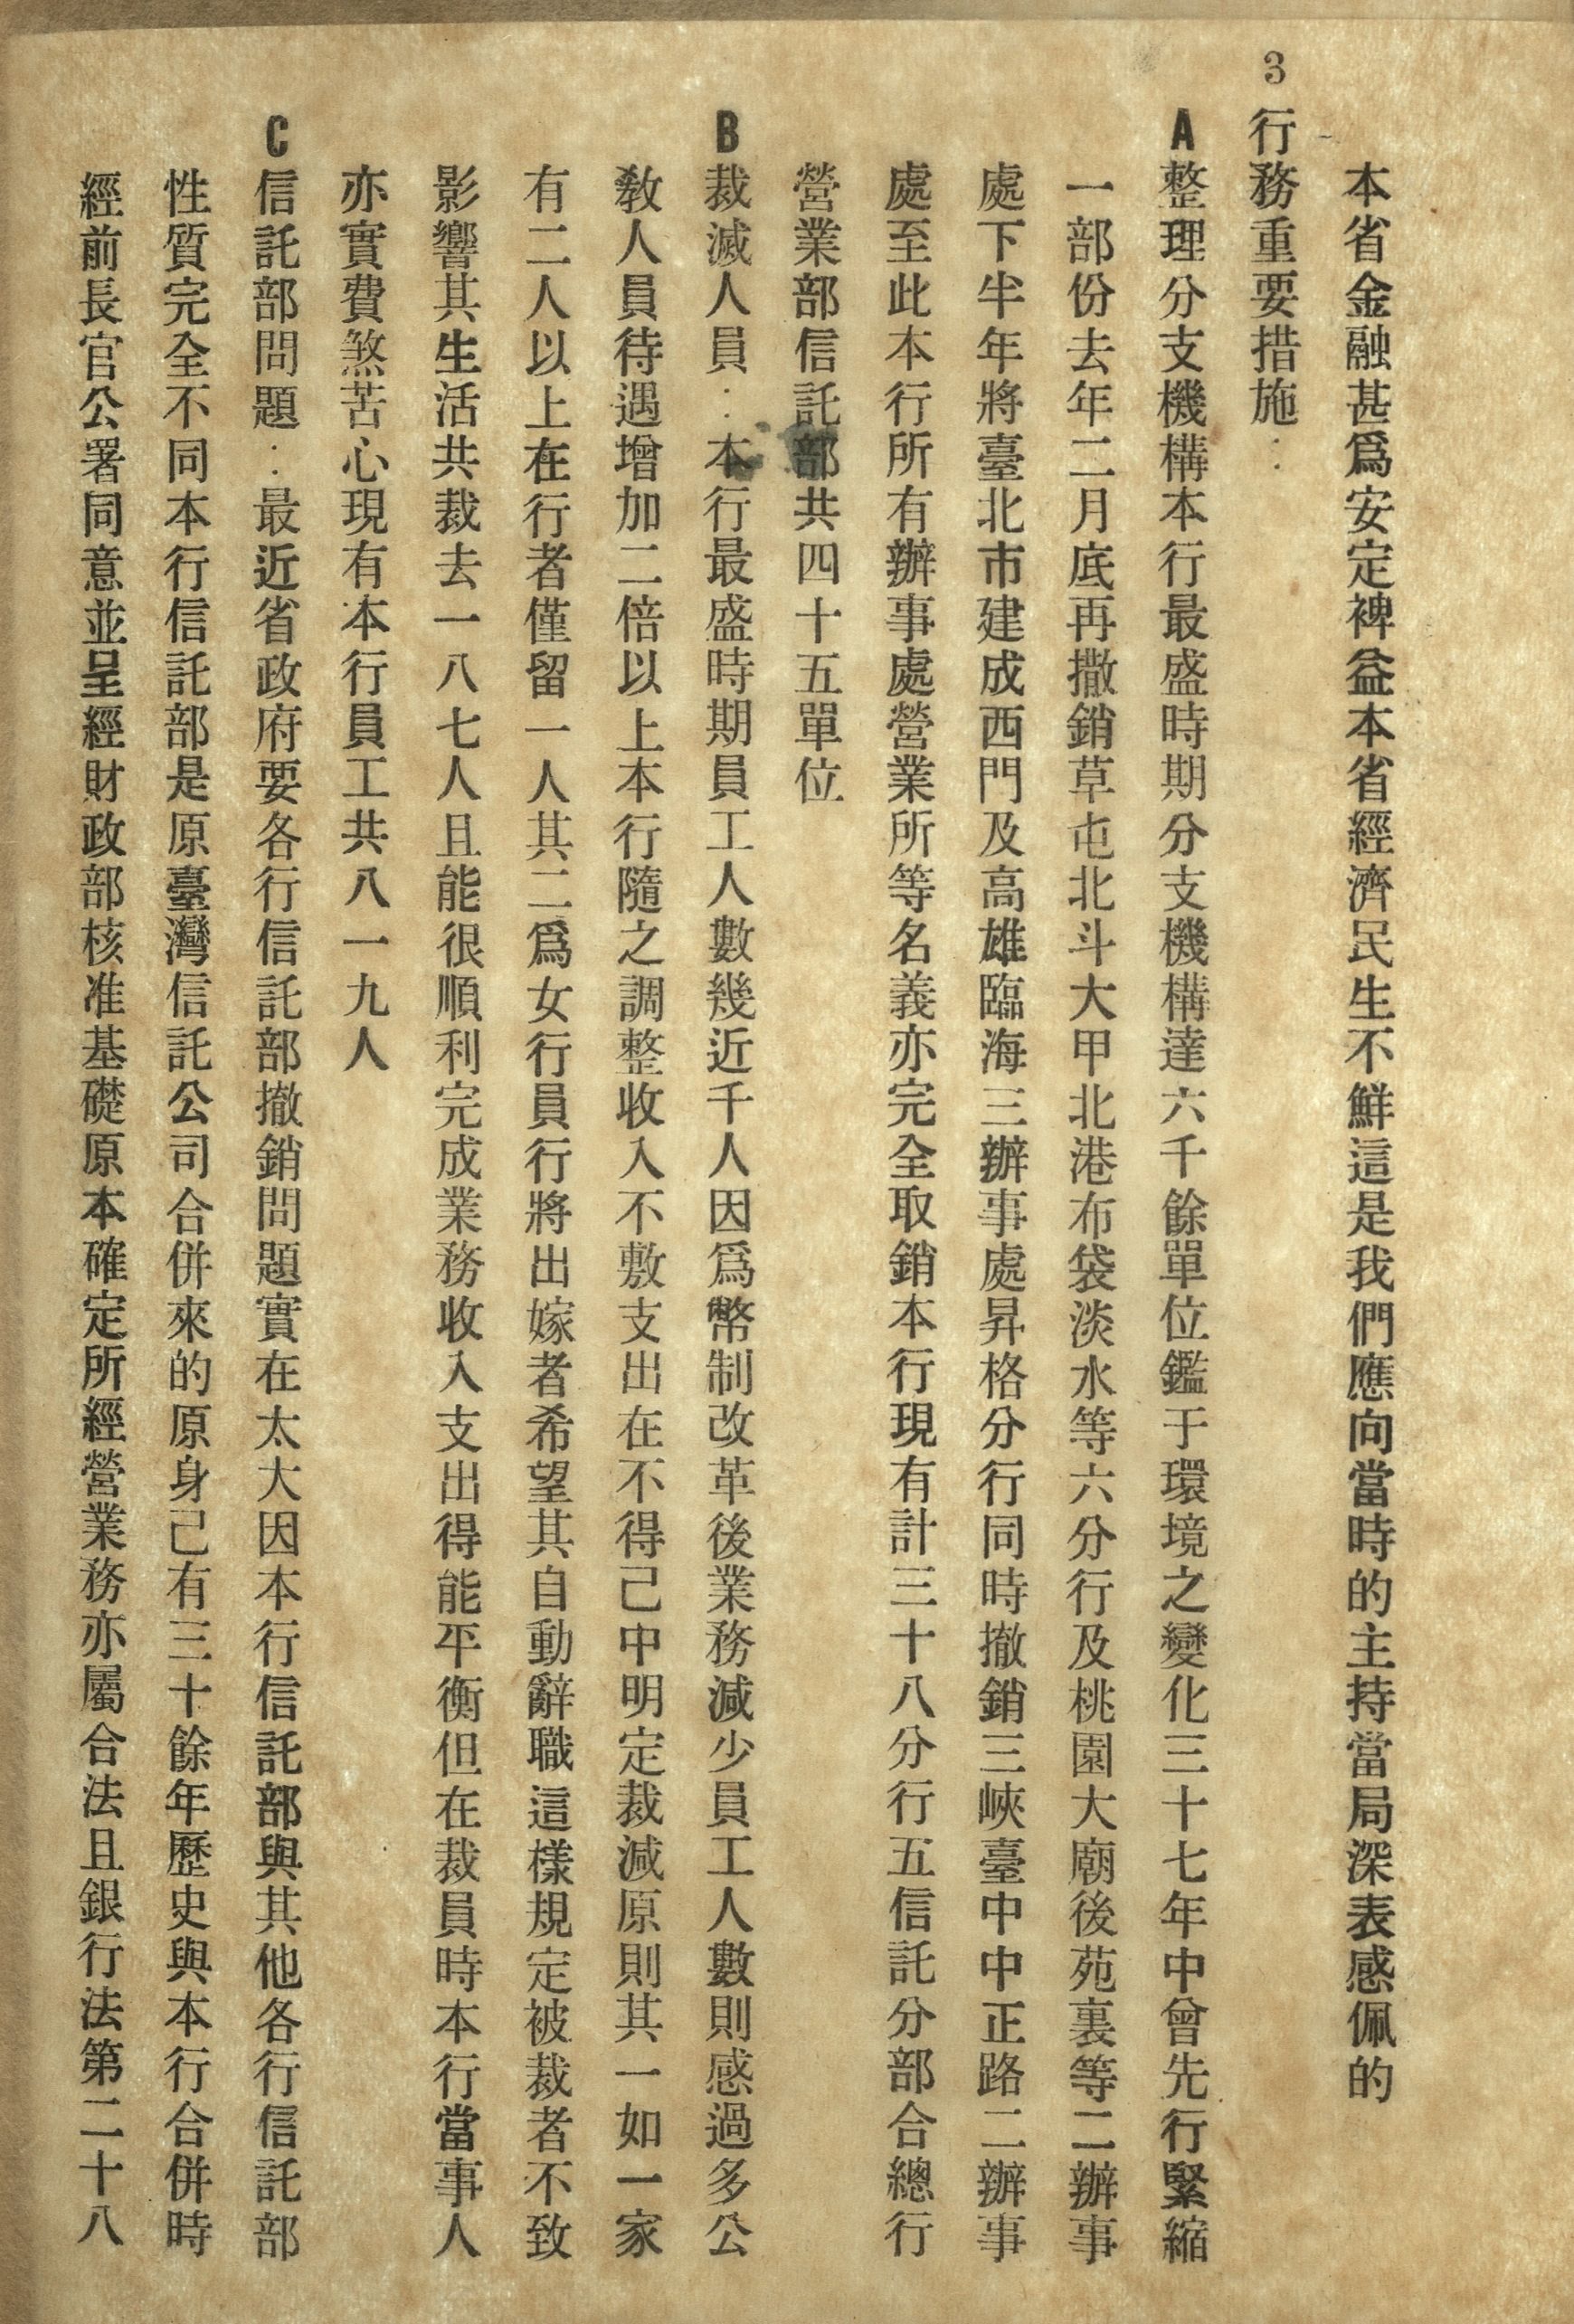 本省金融甚爲安定裨益本省經濟民生不鮮這是我們應向當時的主持當局深表感佩的
3 行務重要措施：
A 整理分支機構本行最盛時期分支機構達六千餘單位鑑于環境之變化三十七年中曾先行緊縮
一部份去年二月底再撒銷草屯北斗大甲北港布袋淡水等六分行及桃園大廟後苑裏等二辦事
處下半年將臺北市建成西門及高雄臨海三辦事處昇格分行同時撤銷三峽臺中中正路二辦事
處至此本行所有辦事處營業所等名義亦完全取銷本行現有計三十八分行五信託分部合總行
營業部信託部共四十五單位
B 裁滅人員：本行最盛時期員工人數幾近千人因爲幣制改革後業務減少員工人數則感過多公
敎人員待遇增加二倍以上本行隨之調整收入不敷支出在不得己中明定裁減原則其一如一家
有二人以上在行者僅留一人其二爲女行員行將出嫁者希望其自動辭職這樣規定被裁者不致
影響其生活共裁去一八七人且能很順利完成業務收入支出得能平衡但在裁員時本行當事人
亦實費煞苦心現有本行員工共八一九人
C 信託部問題：最近省政府要各行信託部撤銷問題實在太大因本行信託部與其他各行信託部
性質完全不同本行信託部是原臺灣信託公司合併來的原身己有三十餘年歷史與本行合併時
經前長官公署同意並呈經財政部核准基礎原本確定所經營業務亦屬合法且銀行法第二十八